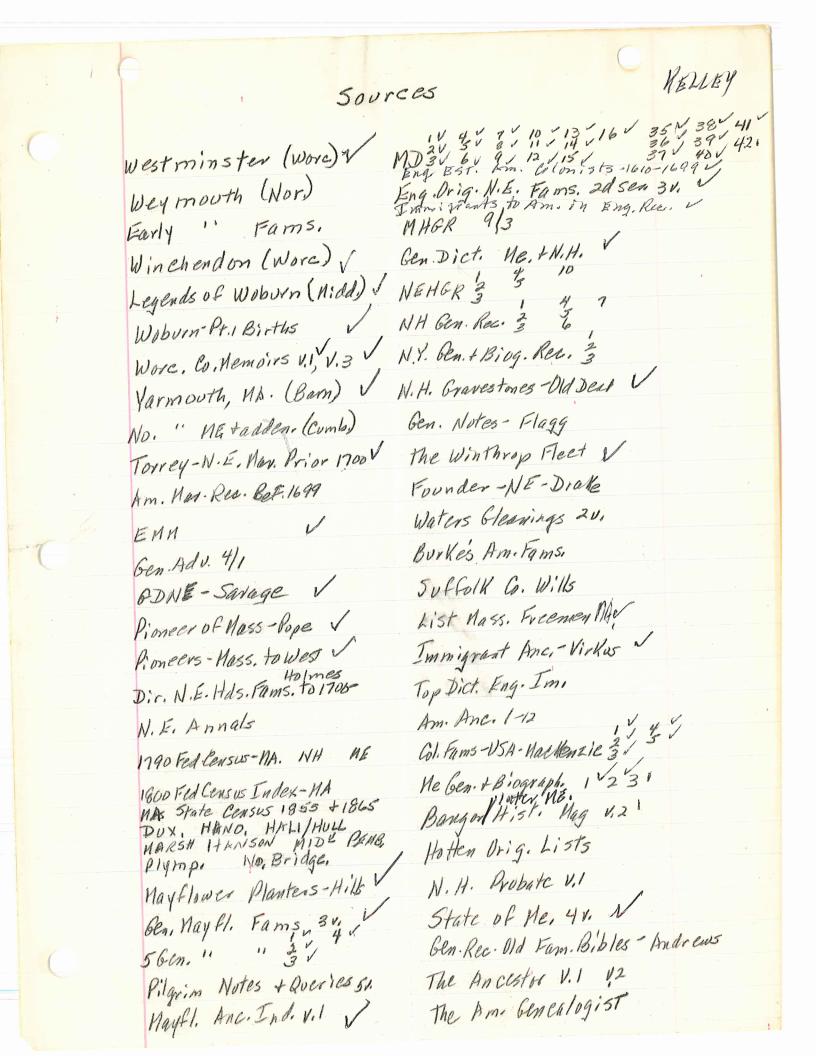 Sources
KELLEY
Westminster (Worc) ✓
Weymouth (Nor.)
Early " Fams.
Winchendon (Worc) ✓
Legends of Woburn (Midd.) ✓
Woburn-Pt.1 Births ✓
Worc. Co. Memoirs v.1 ✓, v.3 ✓
Yarmouth, MA. (Barn) ✓
No. " ME + adden. (Cumb.)
Torrey-N.E. Mar. Prior 1700 ✓
Am. Mar. Rec. Bef. 1699
EMM ✓
Gen. Adv. 4/1
GDNE - Savage ✓
Pioneer of Mass-Pope ✓
Pioneers-Mass. to West ✓
Holmes
Dir. N.E. Hds. Fams. to 1700
N.E. Annals
1790 Fed Census-MA. NH ME
1800 Fed Census Index-MA
MA State Census 1855 + 1865
DUX, HANO, HALI/HULL
MARSH HANSON MIDL PEMB.
Plymp. No. Bridge.
Mayflower Planters-Hills ✓
Gen. Mayfl. Fams. 3v. ✓
1 ✓ 4 ✓
5 Gen. " " 2 ✓
3 ✓
Pilgrim Notes + Queries 5v.
Mayfl. Anc. Ind. v.1 ✓
1 ✓ 4 ✓ 7 ✓ 10 ✓ 13 ✓ 16 ✓ 35 ✓ 38 ✓ 41 ✓
2 ✓ 5 ✓ 8 ✓ 11 ✓ 14 ✓ 36 ✓ 39 ✓ 42
MD 3 ✓ 6 ✓ 9 ✓ 12 ✓ 15 ✓ 37 ✓ 40 ✓
Eng. Est. Am. Colonists-1610-1699 ✓
Eng. Orig. N.E. Fams. 2d ser 3v. ✓
Immigrants to Am. in Eng. Rec. ✓
MHGR 9/3
Gen. Dict. Me. + N.H. ✓
1 4 10
NEHGR 2 5
3
1 4 7
NH Gen. Rec. 2 5
3 6
1
N.Y. Gen. + Biog. Rec. 2
3
N.H. Gravestones-Old Dead ✓
Gen. Notes- Flagg
The Winthrop Fleet ✓
Founder-NE-Drake
Waters Gleanings 2v.
Burke's Am. Fams.
Suffolk Co. Wills
List Mass. Freemen MA ✓
Immigrant Anc.-Virkus ✓
Top Dict. Eng. Im.
Am. Anc. 1-12
1 ✓ 4 ✓
Col. Fams-USA-MacKenzie 2 5 ✓
3 ✓
Me Gen. + Biograph. 1 ✓ 2 ✓ 3
later Me.
Bangor/Hist. Mag v.2
Hotten Orig. Lists
N.H. Probate v.1
State of Me. 4v. ✓
Gen. Rec. Old Fam. Bibles - Andrews
The Ancestor v.1 v.2
The Am. Genealogist